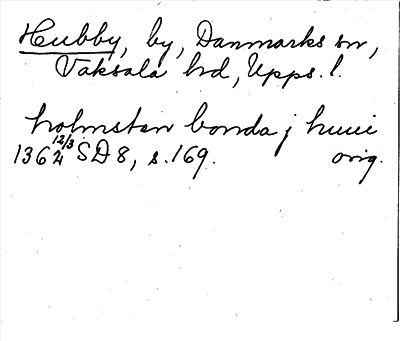 Hubby, by, Danmarks sn,
Vaksala hd, Upps. l.
holmsten bonda j huui
1362 12/3 SD 8, s. 169. orig.